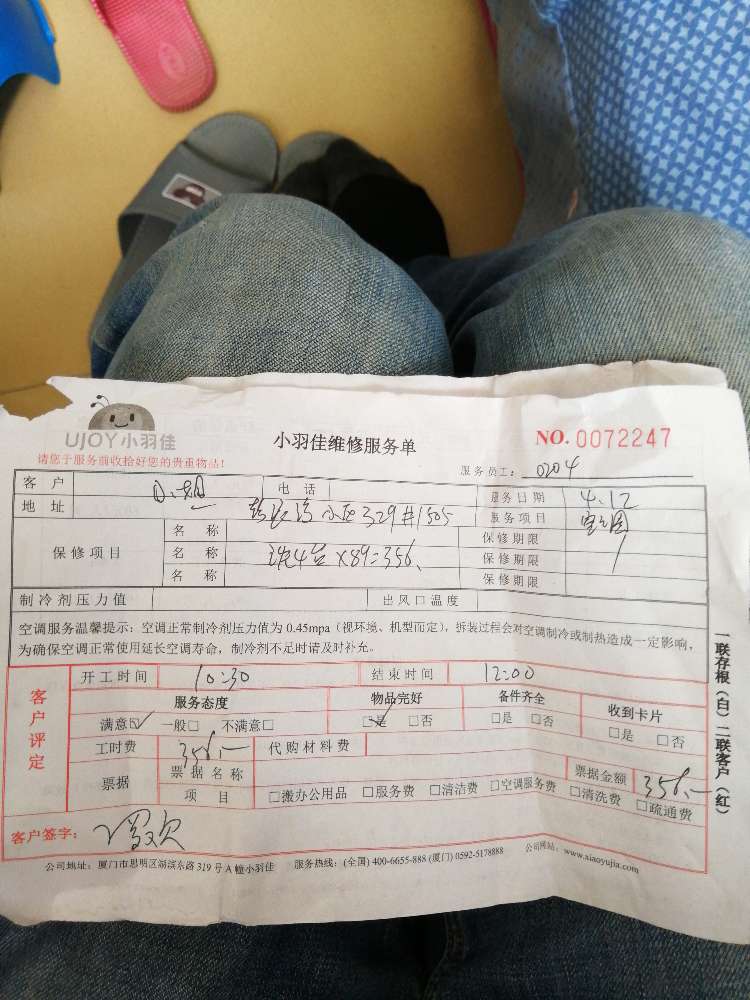 UJOY小羽佳
小羽佳维修服务单
NO. 0072247
请您于服务前收拾好您的贵重物品!
服务员工: 0204
客 户 电 话 服务日期 4.12
地 址 小区329#1505 服务项目
保修项目 名 称 保修期限
名 称 洗4台×89=356 保修期限
名 称 保修期限
制冷剂压力值 出风口温度
空调服务温馨提示: 空调正常制冷剂压力值为 0.45mpa (视环境、机型而定), 拆装过程会对空调制冷或制热造成一定影响,
为确保空调正常使用延长空调寿命, 制冷剂不足时请及时补充。
客户评定
开工时间 10:30 结束时间 12:00
服务态度 物品完好 备件齐全 收到卡片
满意☑ 一般□ 不满意□ ☑是 □否 □是 □否 □是 □否
工时费 356.— 代购材料费
票据 票据名称 票据金额 356.—
项 目 □搬办公用品 □服务费 □清洁费 □空调服务费 □清洗费 □疏通费
客户签字:
公司地址: 厦门市思明区湖滨东路 319 号 A 幢小羽佳 服务热线: (全国) 400-6655-888 (厦门) 0592-5178888 公司网站: www.xiaoyujia.com
一联存根(白) 二联客户(红)